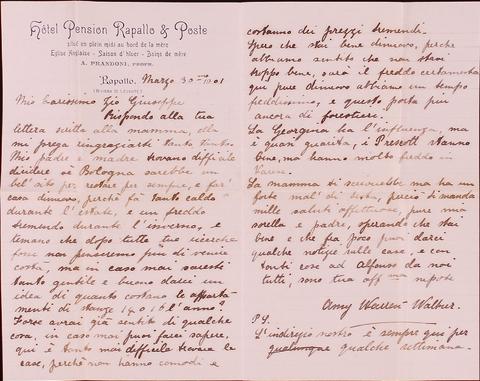 Hôtel Pension Rapallo & Poste
situé en plein midi au bord de la mère
Eglise Anglaise - Saison d'hiver - Bains de mère
A. PRANDONI, PROPR.
Rapallo, Marzo 30 1901
(RIVIERA DI LEVANTE)
Mio Carissimo Zio Giuseppe
Rispondo alla tua
lettera scritta alla mamma, ella
mi prega ringraziarti tanto tanto.
Mio padre e madre trovano difficile
decidere se Bologna sarebbe un
bel sito per restare per sempre, e far
casa dinuovo, perchè fa tanto caldo
durante l'estate, e un freddo
tremendo durante l'inverno, e
temano che dopo tutte tue ricerche
forse non penseremo più di venire
costà, ma in caso mai saresti
tanto gentile e buono darci un
idea di quanto costano gli apparta
menti di stanze 14 o 16 l'anno?
Forse avrai già sentito di qualche
cosa, in caso mai puoi farci sapere,
qui è tanto mai difficile trovare le
case, perchè non hanno comodi e
costano dei prezzi tremendi.
Spero che stai bene dinuovo, perchè
abbiamo sentito che non stavi
troppo bene, sarà il freddo certamente
qui pure dinuovo abbiamo un tempo
freddissimo, e questo porta più
ancora di forestieri.
La Georgina ha l'influenza, ma
è quasi guarita, i Prescott stanno
bene, ma hanno molto freddo in
Varese.
La mamma ti scriverebbe ma ha un
forte mal' di testa, perciò ti manda
mille saluti affettuosi, pure mia
sorella e padre, sperando che stai
bene e che fra poco puoi darci
qualche notizie sulle case, e con
tanti cose ad Alfonso da noi
tutti, sono tua aff nipote
Amy Warren Walbur.
P.S.
L'indirizzo nostro è sempre qui per
qualunque qualche settimane.